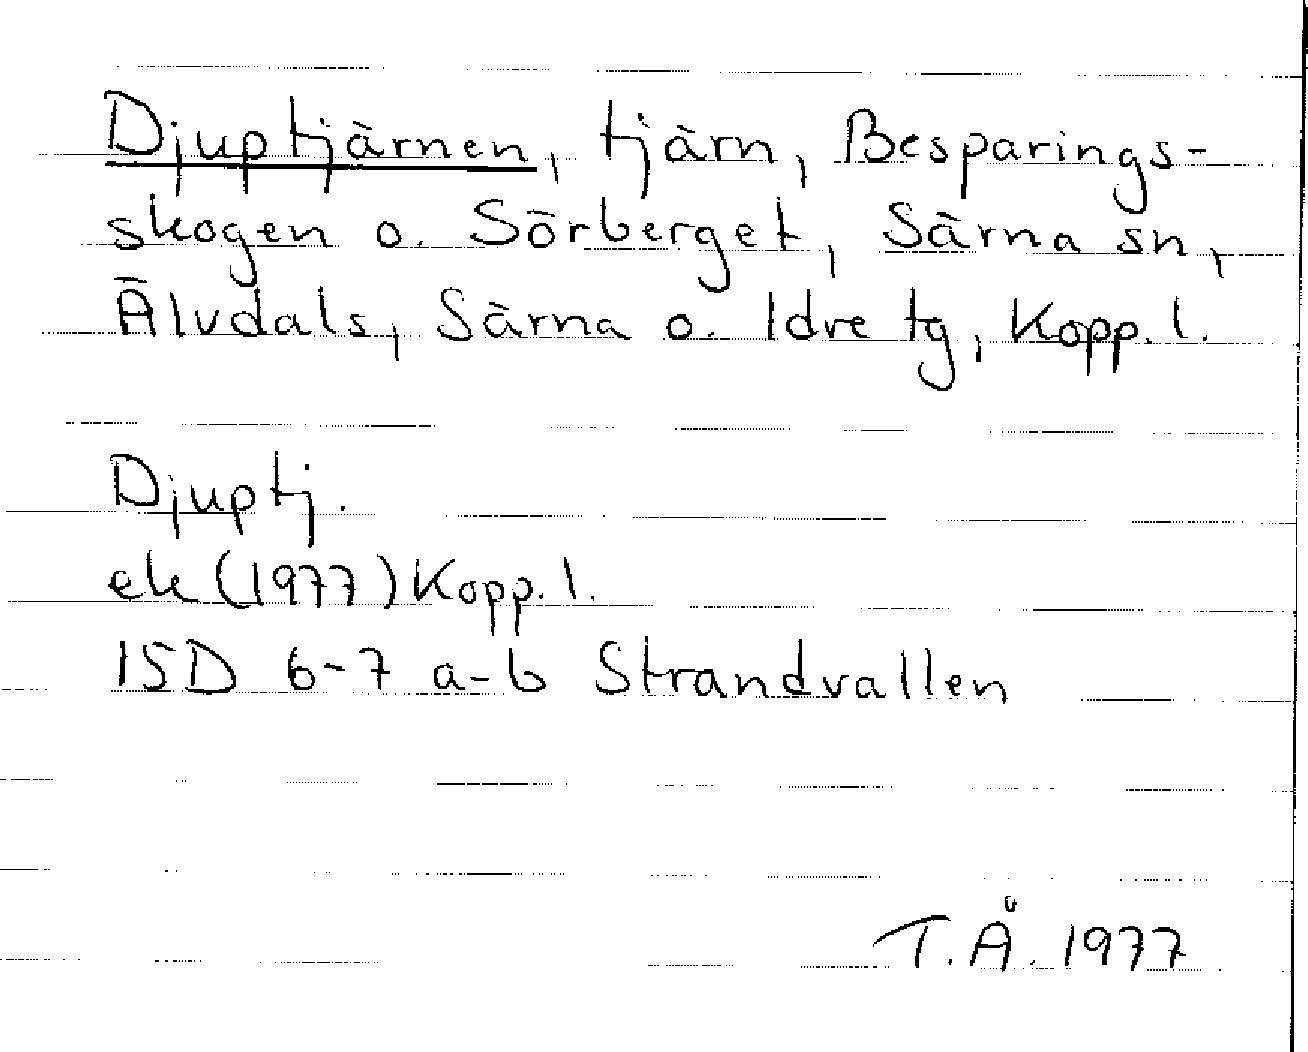 Djuptjärnen, tjärn, Besparings-
skogen o. Sörberget, Särna sn,
Älvdals, Särna o. Idre tg, Kopp. l.
Djuptj.
ek (1977) Kopp. l.
15D 6-7 a-b Strandvallen
T.Å. 1977